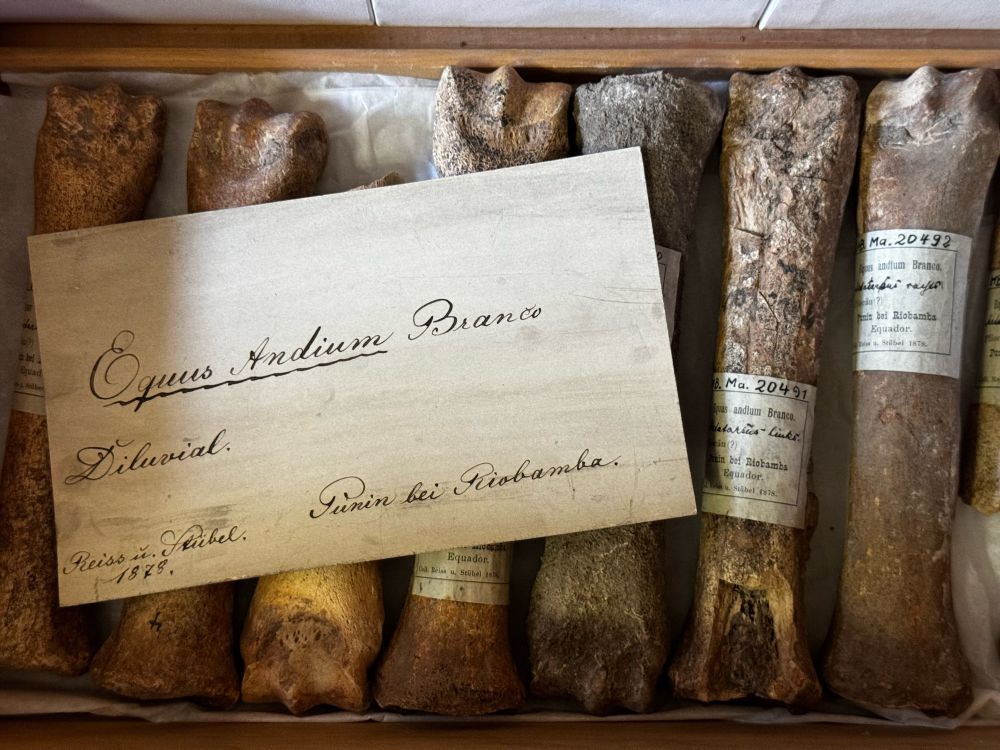 Equus Andium Branco
Diluvial.
Punin bei Riobamba.
Reiss u. Stübel.
1878.
Equador.
Coll. Reiss u. Stübel 1878.
Ma. 20491
Equus andium Branco.
links.
(?)
Punin bei Riobamba
Equador.
u. Stübel 1878.
Ma. 20492
Equus andium Branco.
(?)
Punin bei Riobamba
Equador.
Reiss u. Stübel 1878.